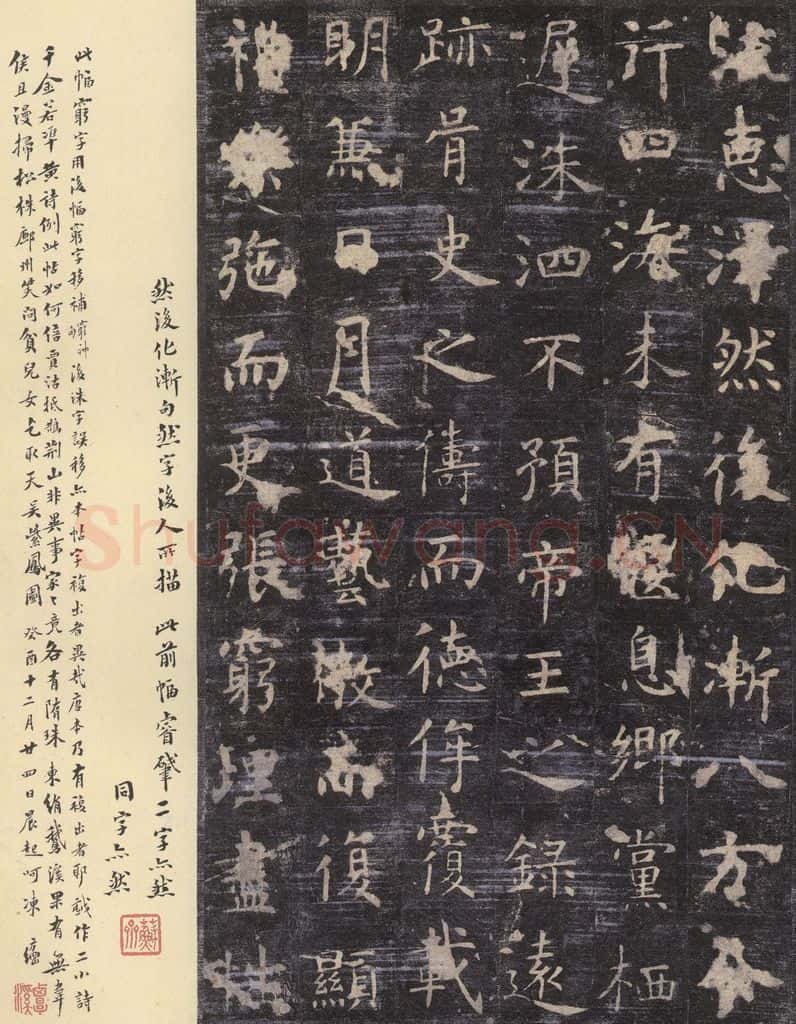 流恵澤然後化漸八方令
行四海未有偃息鄉黨栖
遲洙泗不預帝王之錄遠
跡胥史之儔而德侔覆載
明兼日月道藝微而復顯
禮樂弛而更張窮理盡性
然後化漸句然字後人所描 此前幅睿肇二字亦然
同字亦然
此幅窮字用後幅窮字移補窮神後洙字誤移亦本帖字複出者異哉唐本乃有複出者耶戲作二小詩
千金若準黃詩例此帖如何信賈沽抵鵲荊山非異事家々竟各有隋珠 東絹鵝溪果有無韋
侯且漫掃松株鄜州笑問貧兒女乞取天吳紫鳳圖 癸酉十二月廿四日晨起呵凍
覃溪
Shufawang.CN